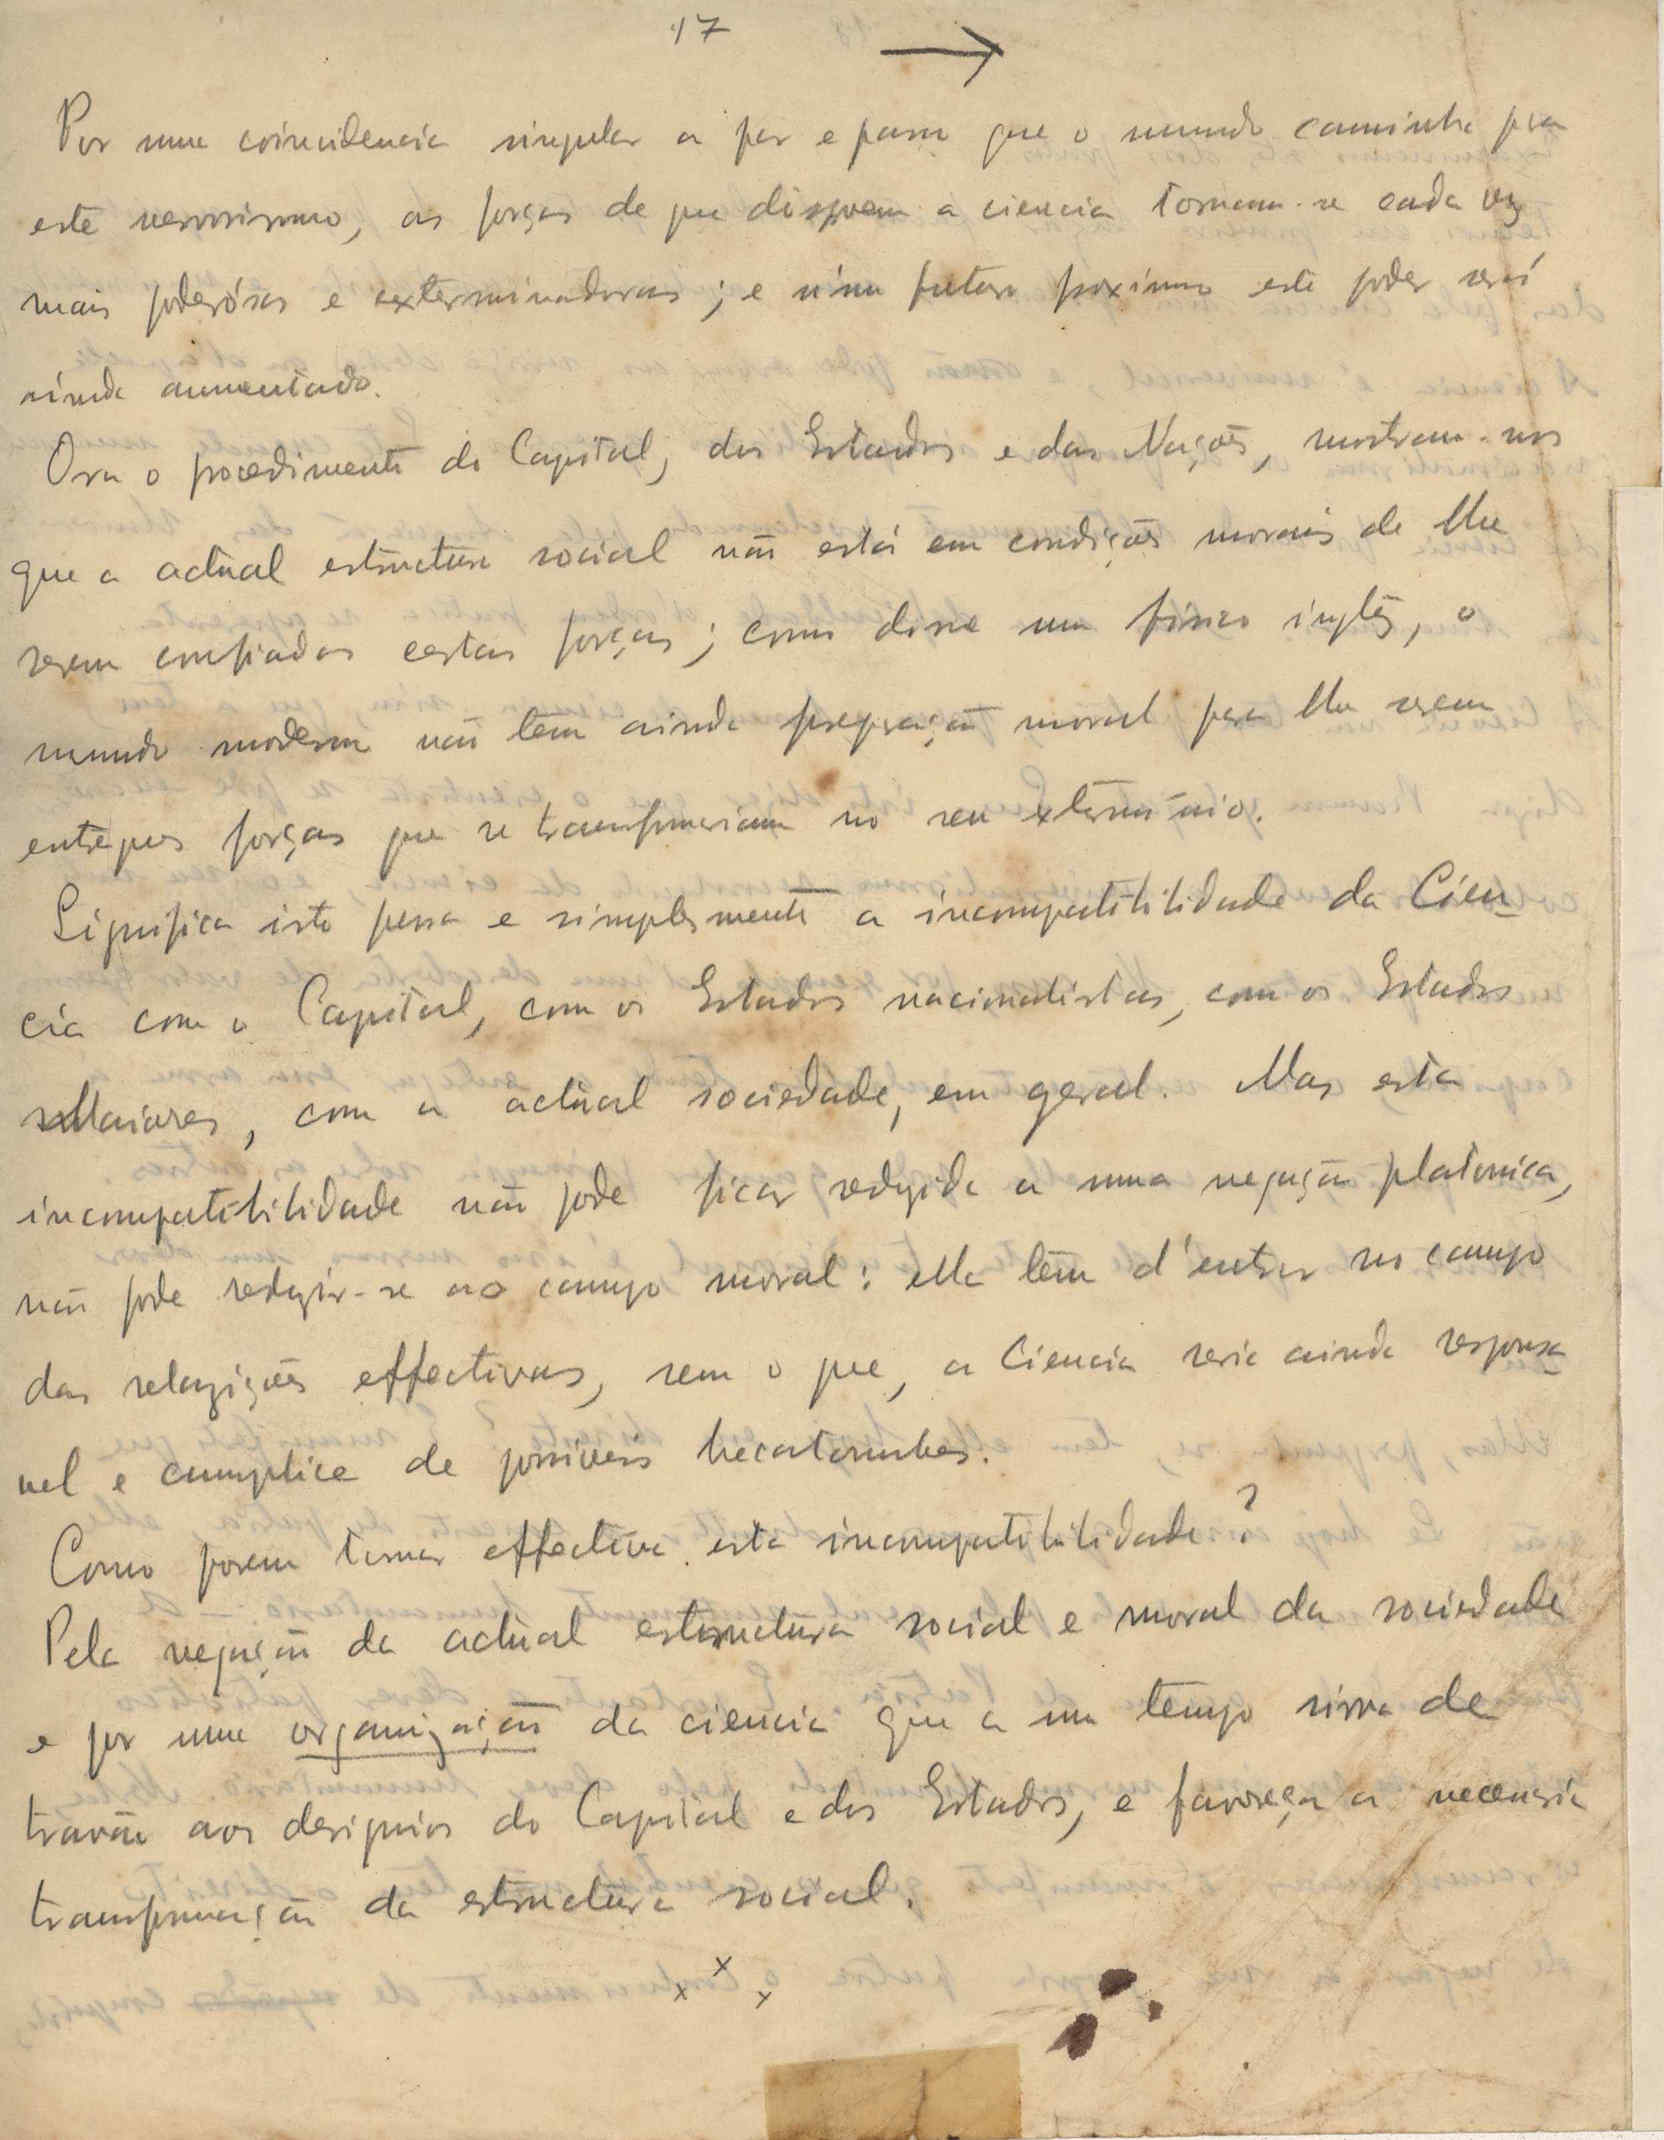 17
Por uma coincidencia singular a par e passo que o mundo caminha para
este nervosismo, as forças de que dispoem a ciencia tornam-se cada vez
mais poderósas e exterminadoras; e n'um futuro proximo este poder será
ainda aumentado.
Ora o procedimento do Capital, dos Estados e das Nações, mostram-nos
que a actual estructura social não está em condições moraes de lhe
serem confiadas certas forças; como disse um fisico inglês, o
mundo moderno não tem ainda preparação moral para lhe serem
entregues forças que se transformariam no seu exterminio.
Significa isto pura e simplesmente a incompatibilidade da Cien-
cia com o Capital, com os Estados nacionalistas, com os Estados
, com a actual sociedade, em geral. Mas esta
incompatibilidade não pode ficar reduzida a uma negação platonica,
não pode reduzir-se ao campo moral: ella tem d'entrar no campo
das effectivas, sem o que, a Ciencia seria ainda responsa
vel e cumplice de possiveis hecatombes.
Como porem tornar effectiva esta incompatibilidade?
Pela negação da actual estructura social e moral da sociedade
e por uma organização da ciencia que a um tempo sirva de
travão aos designios do Capital e dos Estados, e favoreça a necessaria
transformação da estructura social.
x x x